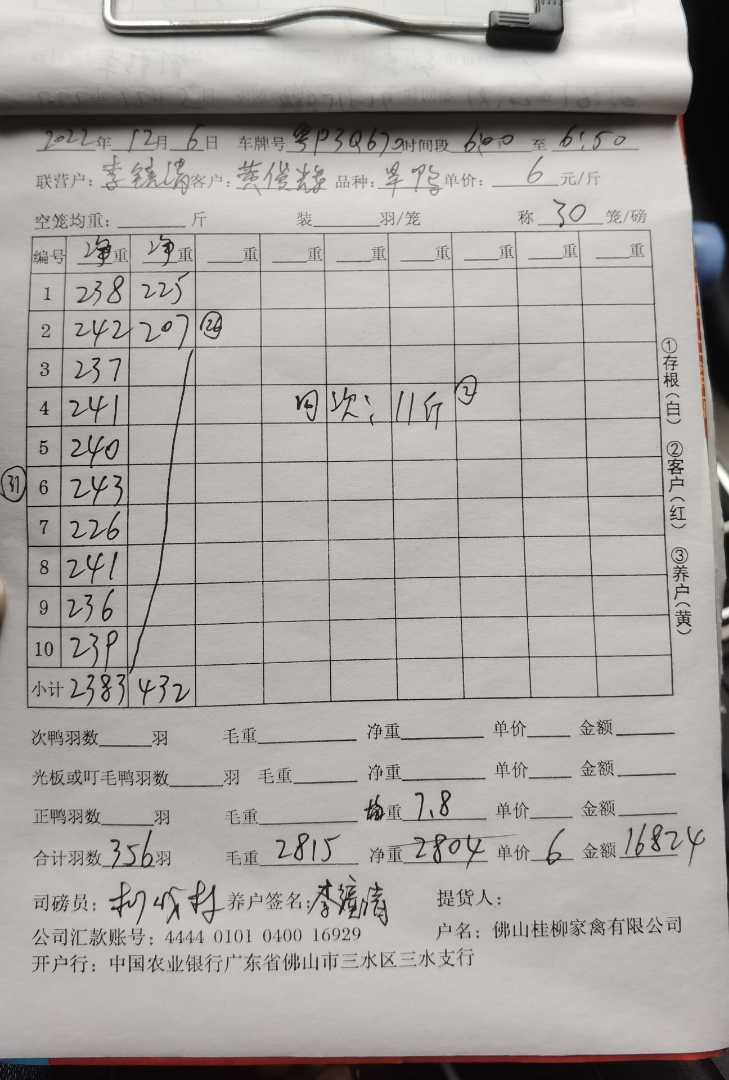 2022年 12月 6日 车牌号 粤P3Q67 时间段 6:00 至 6:50
联营户: 李镜清 客户: 黄俊 品种: 旱鸭 单价: 6 元/斤
空笼均重: 斤 装 羽/笼 称 30 笼/磅
编号 净重 净重 重 重 重 重 重 重 重
1 238 225
2 242 207 26
3 237
4 241 回次: 11斤 2
5 240
31 6 243
7 226
8 241
9 236
10 239
小计 2383 432
①存根(白) ②客户(红) ③养户(黄)
次鸭羽数 羽 毛重 净重 单价 金额
光板或叮毛鸭羽数 羽 毛重 净重 单价 金额
正鸭羽数 羽 毛重 均重 7.8 单价 金额
合计羽数 356 羽 毛重 2815 净重 2804 单价 6 金额 16824
司磅员: 养户签名: 李 提货人:
公司汇款账号: 4444 0101 0400 16929 户名: 佛山桂柳家禽有限公司
开户行: 中国农业银行广东省佛山市三水区三水支行